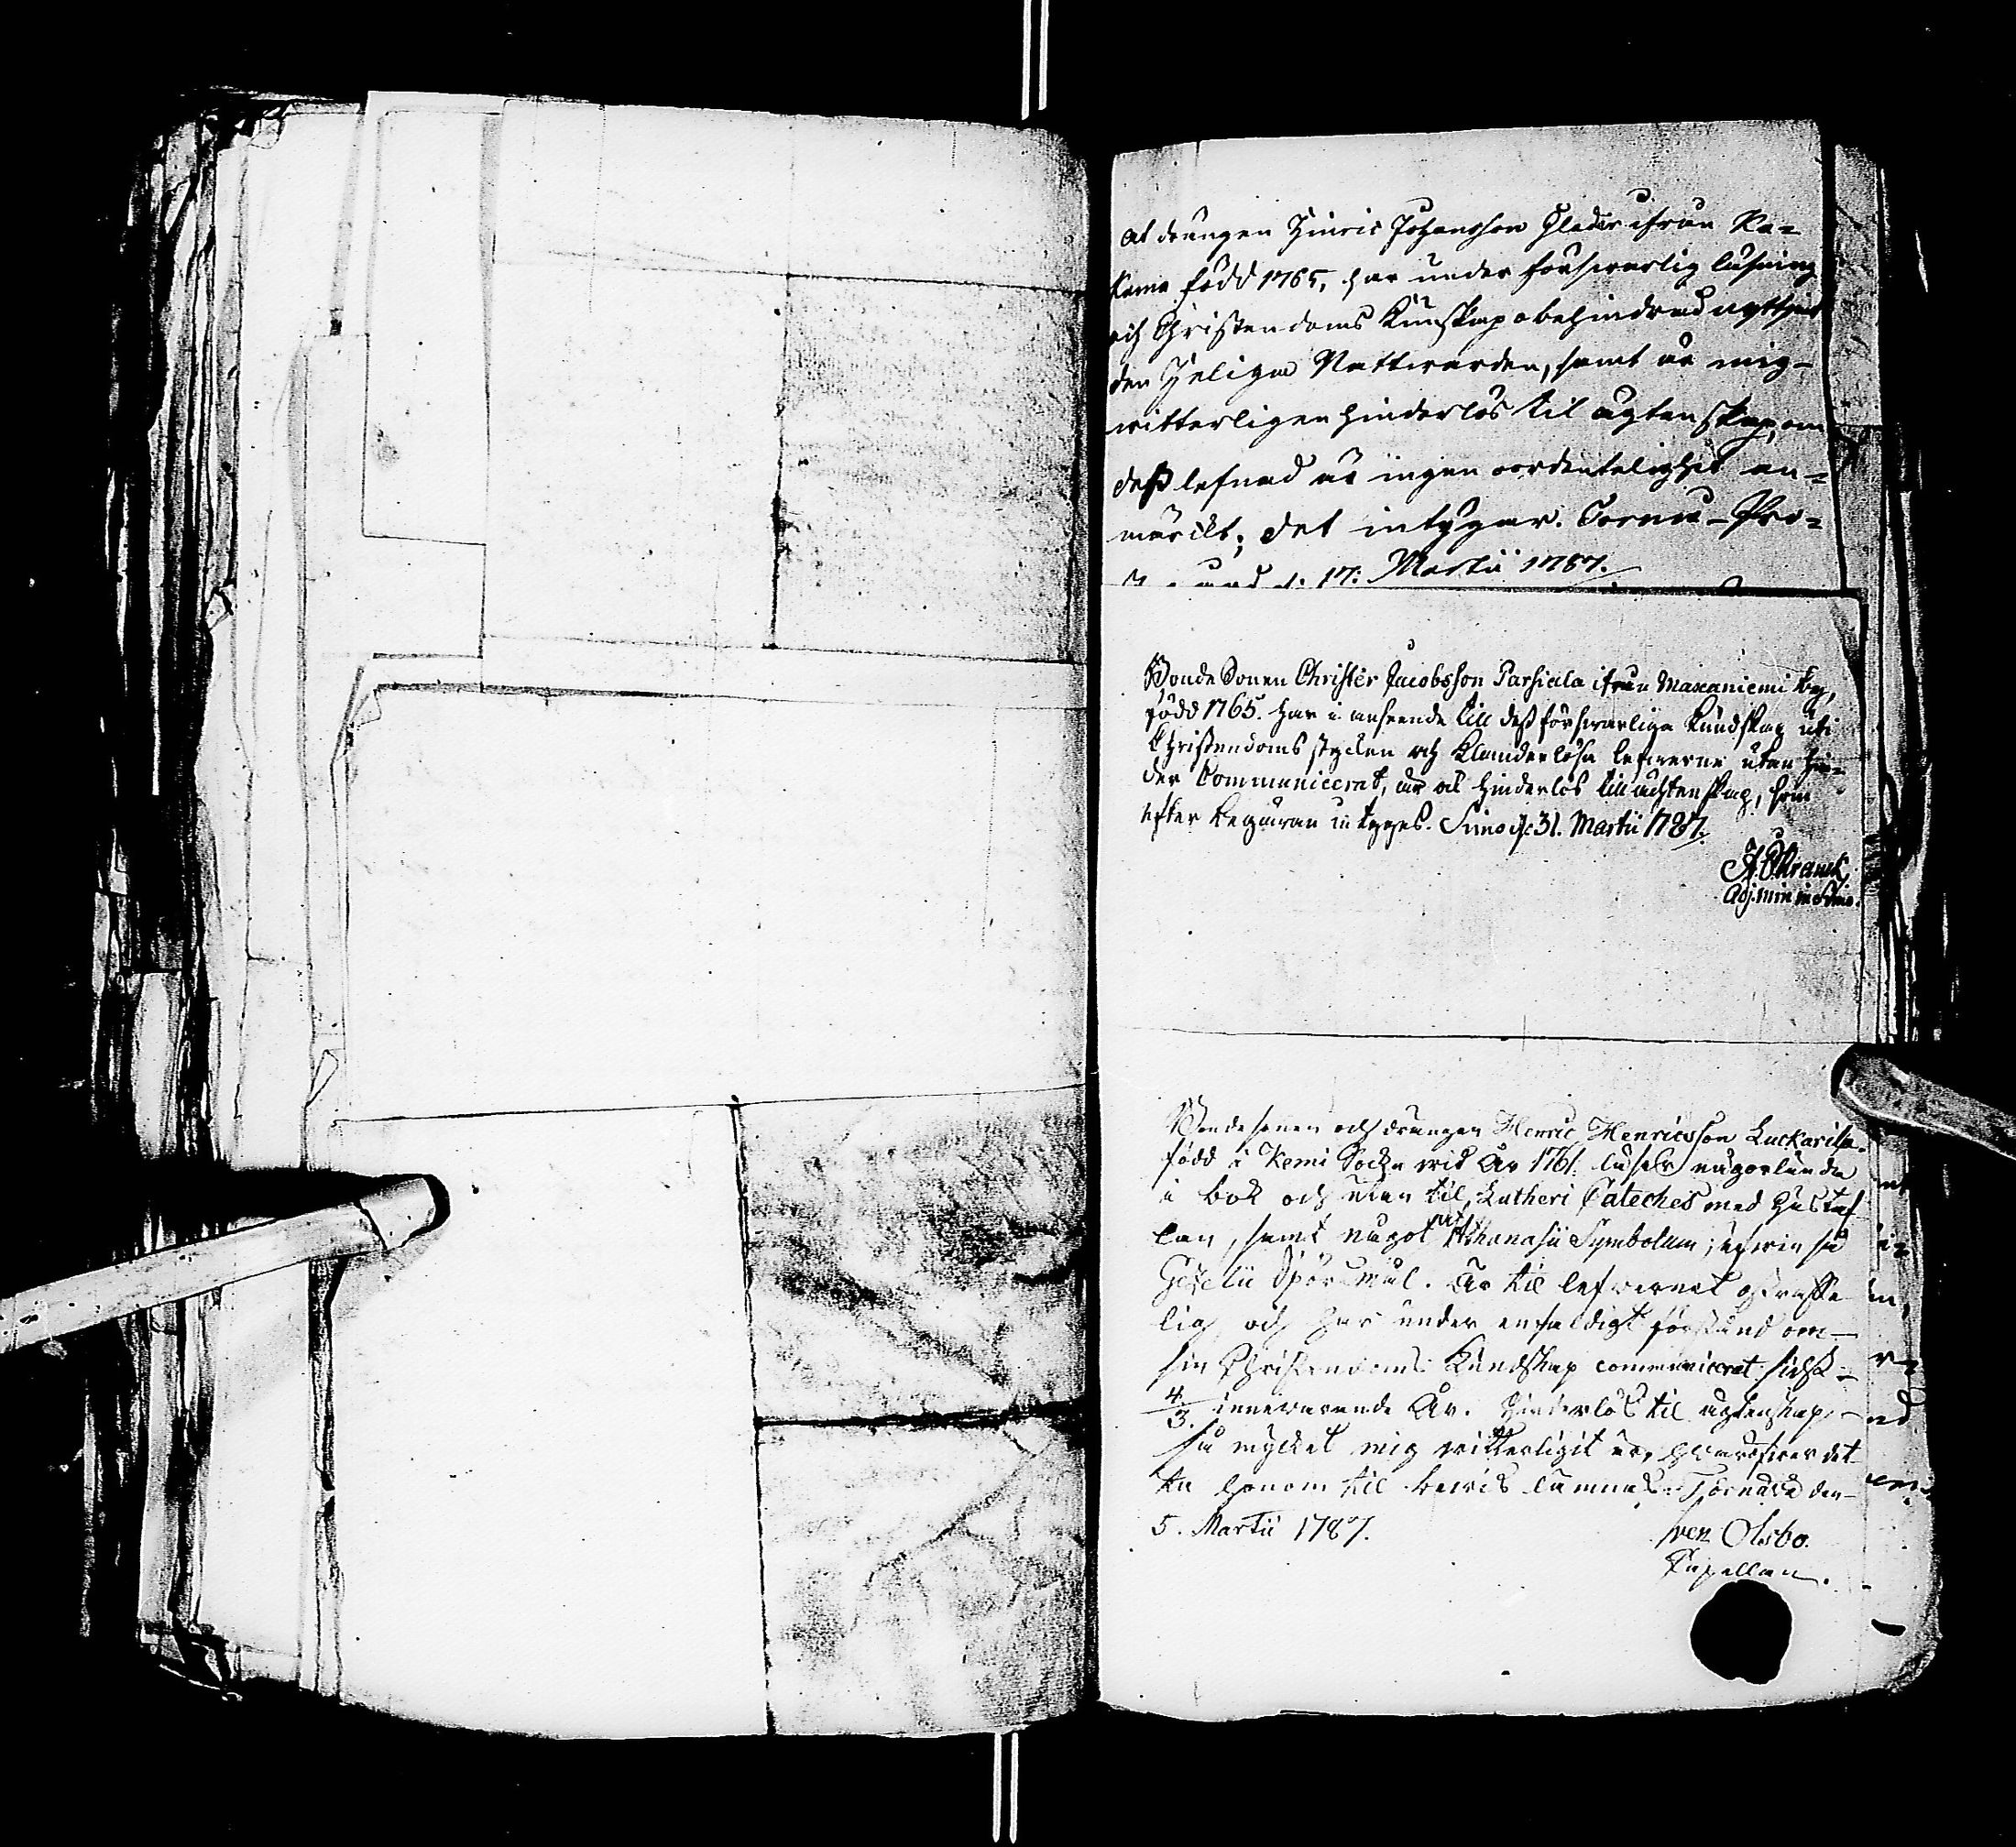 at drängen Hinric Johansson Glader ifrån Ra-
kama född 1765, har under försvarlig läsning
och Christendoms Kunskap obehindrad nyttjat
den Heliga Nattwarden, samt är mig-
witterligen hinderlös til ägtenskap, om
dess lefnad är ingen oordentelighet an-
märckt; det intygar. Torneå-Pro-
d. 17: Martii 1787.
Bonde Sonen Christer Jacobsson Parsiala ifrån Maxaniemi by,
född 1765. har i anseende till dess försvarliga kundskap uti
Christendoms stycken och Klanderlösa lefwerne utan hin-
der Communicerat, är ock hinderlös till ächtenskap, som
efter begäran intyges. Simo d: 31. Martii 1787.
Adj. min in Simo.
Bondesonen och drängen Henric Henricsson Luckarila
född i Kemi Sockn wid År 1761. läser någorlunda
i bok och utan til, Lutheri Cateches med Hustaf-
lan, samt något ut Athanasii Symbolum; äfwen så
Gezelii Spörsmål. Är til lefwernet
lig och har under enfaldigt förstånd om
sin Christendoms Kundskap communicerat sidst
4/3. innewarande År. Hinderlös til ägtenskap
så mycket mig witterligit är, hwarföre det-
ta honom til bewis lämnas. Torneå den
5. Martii 1787.
Sven Olsbo.
Capellan.